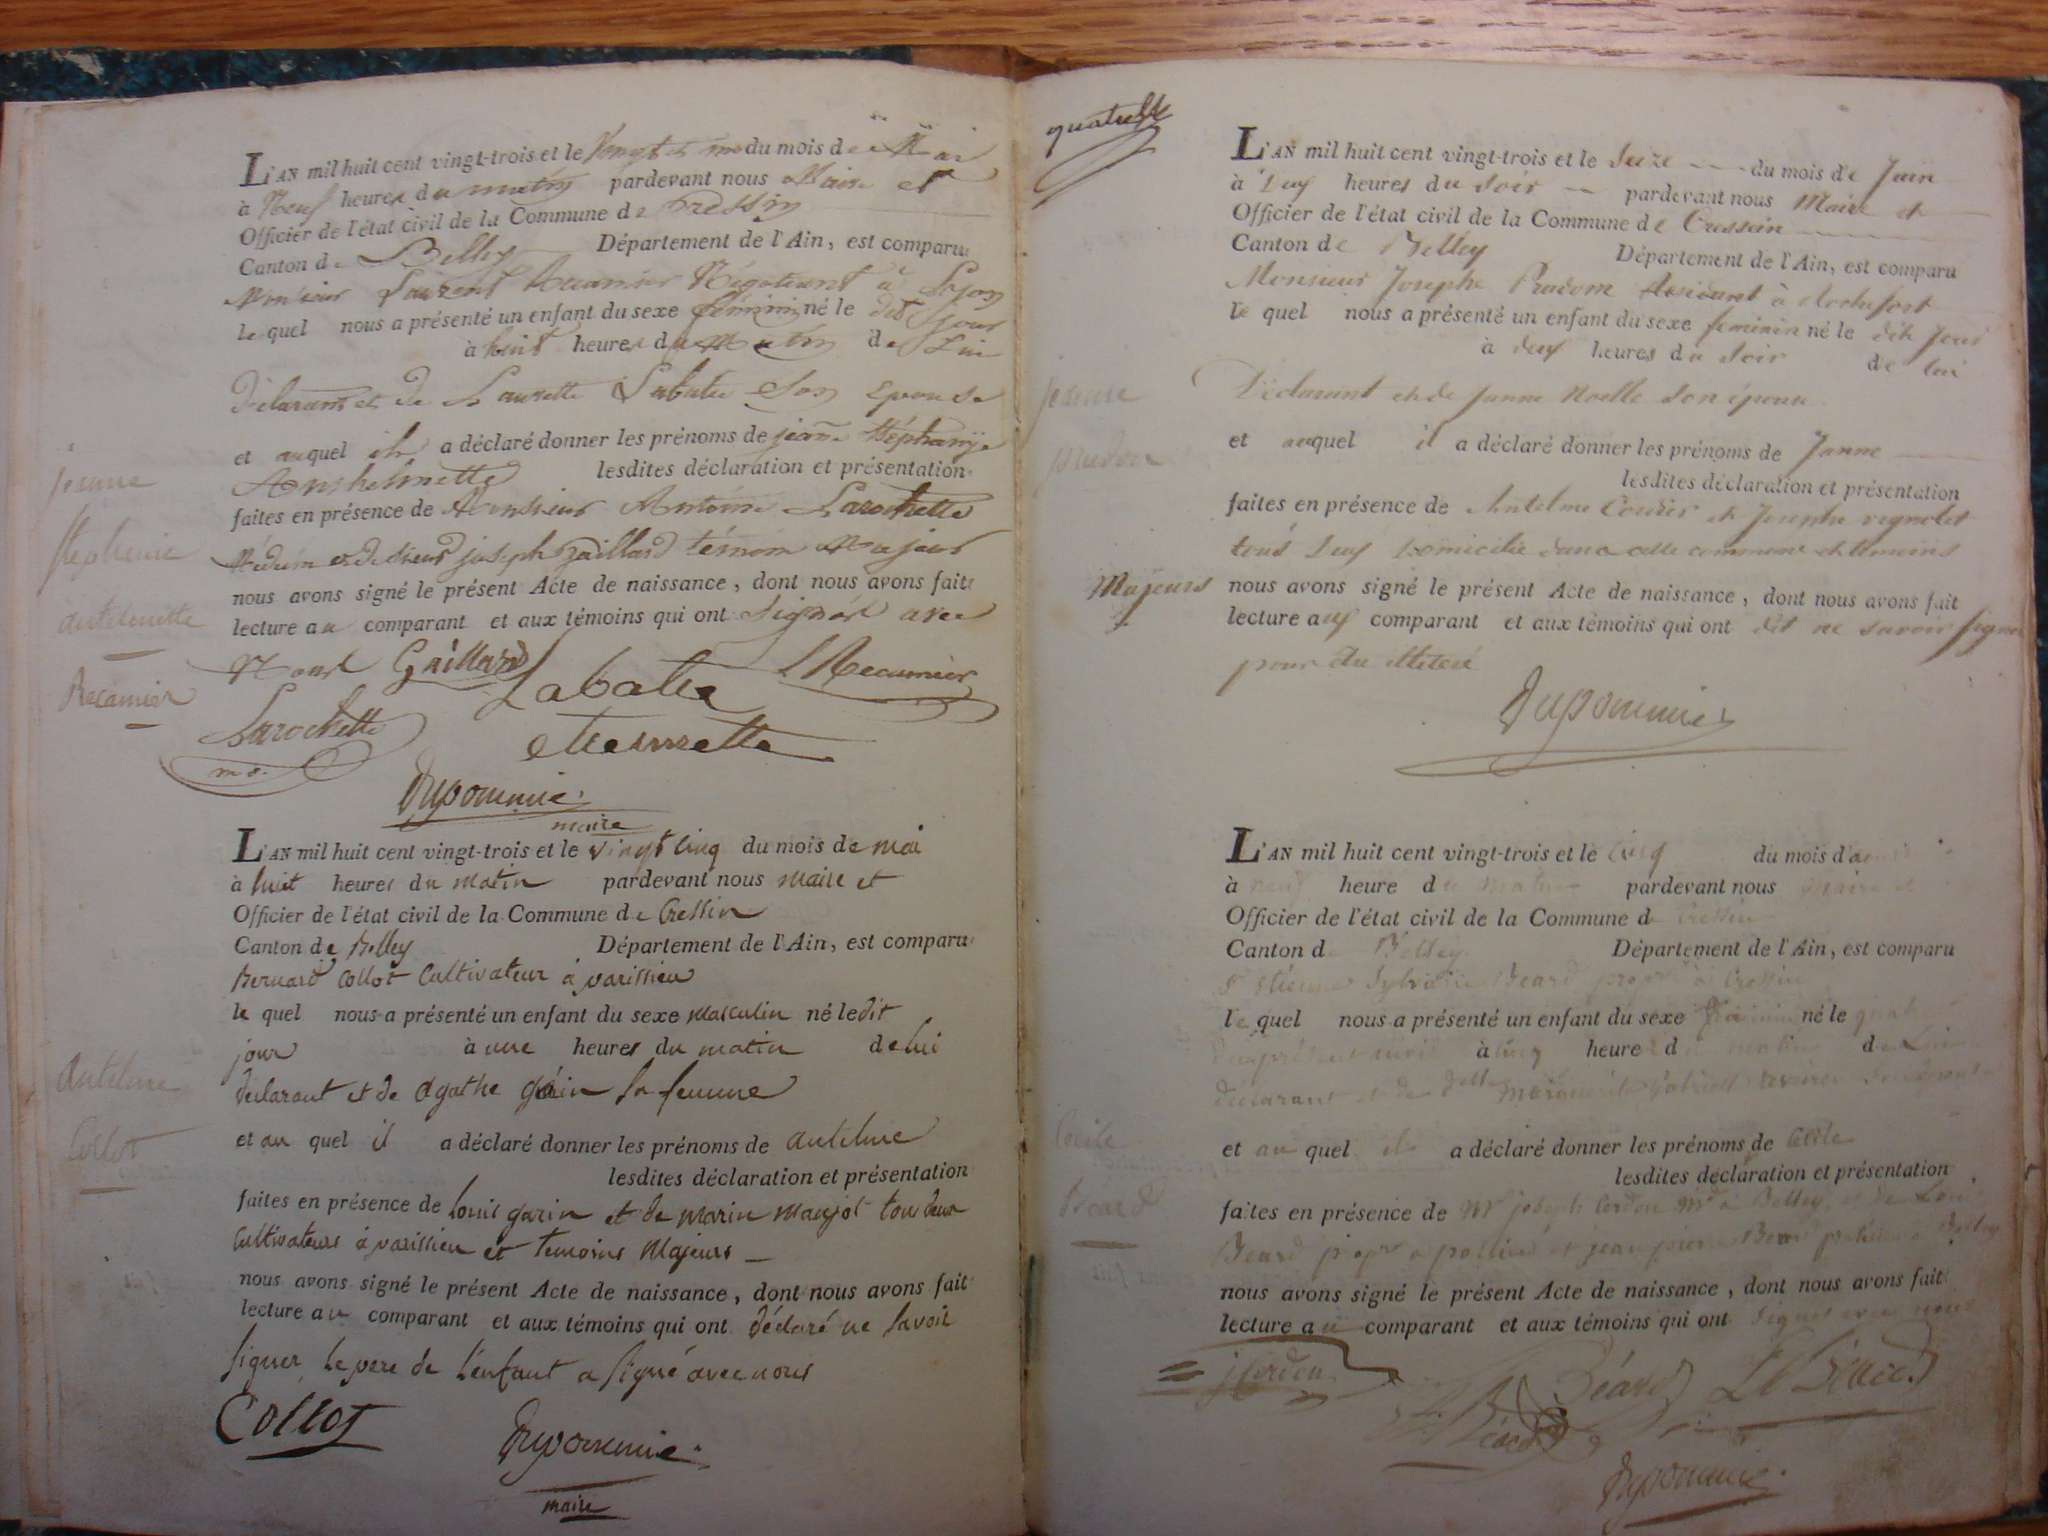 L'AN mil huit cent vingt-trois et le vingt et un du mois de Mai
à Neuf heures du matin pardevant nous Maire et
Officier de l'état civil de la Commune de Cressin
Canton de Belley Département de l'Ain, est comparu
Monsieur Laurent Recamier Négotiant à Lyon
le quel nous a présenté un enfant du sexe féminin né le dit jour
à huit heures du Matin de Lui
Déclarant et de Laurette Labatie Son Epouse
et auquel il a déclaré donner les prénoms de jeanne Stéphanije
Anthelmette lesdites déclaration et présentation
faites en présence de Monsieur Antoine Larochette
Médecin et de Sieur joseph gaillard témoin Majeur
nous avons signé le présent Acte de naissance, dont nous avons fait
lecture au comparant et aux témoins qui ont Signés avec
Nous Gaillard Labatie L Recamier
Larochette
m d.
Dupommié
maire
jeanne
stephanie
antelmette
Recamier
L'AN mil huit cent vingt-trois et le vingt cinq du mois de mai
à huit heures du matin pardevant nous maire et
Officier de l'état civil de la Commune de Cressin
Canton de Belley Département de l'Ain, est comparu
Bernard Collot Cultivateur à varissieu
le quel nous a présenté un enfant du sexe masculin né le dit
jour à une heures du matin de lui
déclarant et de agathe garin sa femme
et au quel il a déclaré donner les prénoms de antelme
lesdites déclaration et présentation
faites en présence de Louis garin et de marin maujot tou deux
Cultivateurs à varissieu et temoins Majeurs
nous avons signé le présent Acte de naissance, dont nous avons fait
lecture au comparant et aux témoins qui ont déclaré ne savoir
signer, le pere de l'enfant a signé avec nous
Collot
Dupommié
maire
Antelme
Collot
quatre
L'AN mil huit cent vingt-trois et le Seize du mois de Juin
à Deux heures du Soir pardevant nous Maire et
Officier de l'état civil de la Commune de Cressein
Canton de Belley Département de l'Ain, est comparu
Monsieur Josephe Prudom Residant à Rochefort
le quel nous a présenté un enfant du sexe feminin né le dit Jour
à deux heures du Soir de lui
Déclarant et de Janne Noelle Son épouse
et auquel il a déclaré donner les prénoms de Janne
lesdites déclaration et présentation
faites en présence de Antelme Cordier et Josephe vignolet
tous deux Domicilié dans cette commune et témoins
Majeurs nous avons signé le présent Acte de naissance, dont nous avons fait
lecture aux comparant et aux témoins qui ont dit ne savoir signer
pour être illiteré
Dupommié
jeanne
prudom
L'AN mil huit cent vingt-trois et le Cinq du mois d'a
à neuf heure du matin pardevant nous maire et
Officier de l'état civil de la Commune de Cressin
Canton de Belley Département de l'Ain, est comparu
Sr étienne Sylvain Béard propre à Cressin
le quel nous a présenté un enfant du sexe féminin né le quatre
du présent mois à cinq heure du matin de Lui
déclarant et de delle marguerite Son épouse
et au quel il a déclaré donner les prénoms de Cécile
lesdites déclaration et présentation
faites en présence de Mr joseph Cerdon Md à Belley, et de Loui
Béard propre à pollieu et jean pierre Béard à Belley
nous avons signé le présent Acte de naissance, dont nous avons fait
lecture au comparant et aux témoins qui ont Signés avec nous
j Cerdon Béard L Béard
Béard
Dupommié
Cecile
Béard